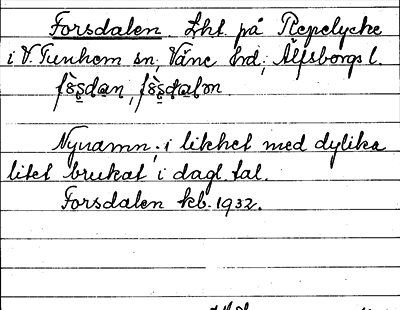 Forsdalen. Lht. på Repelycke
i V. Tunhem sn, Väne hd, Älfsborgs l.
Nynamn; i likhet med dylika
litet brukat i dagl. tal.
Forsdalen kb. 1932.